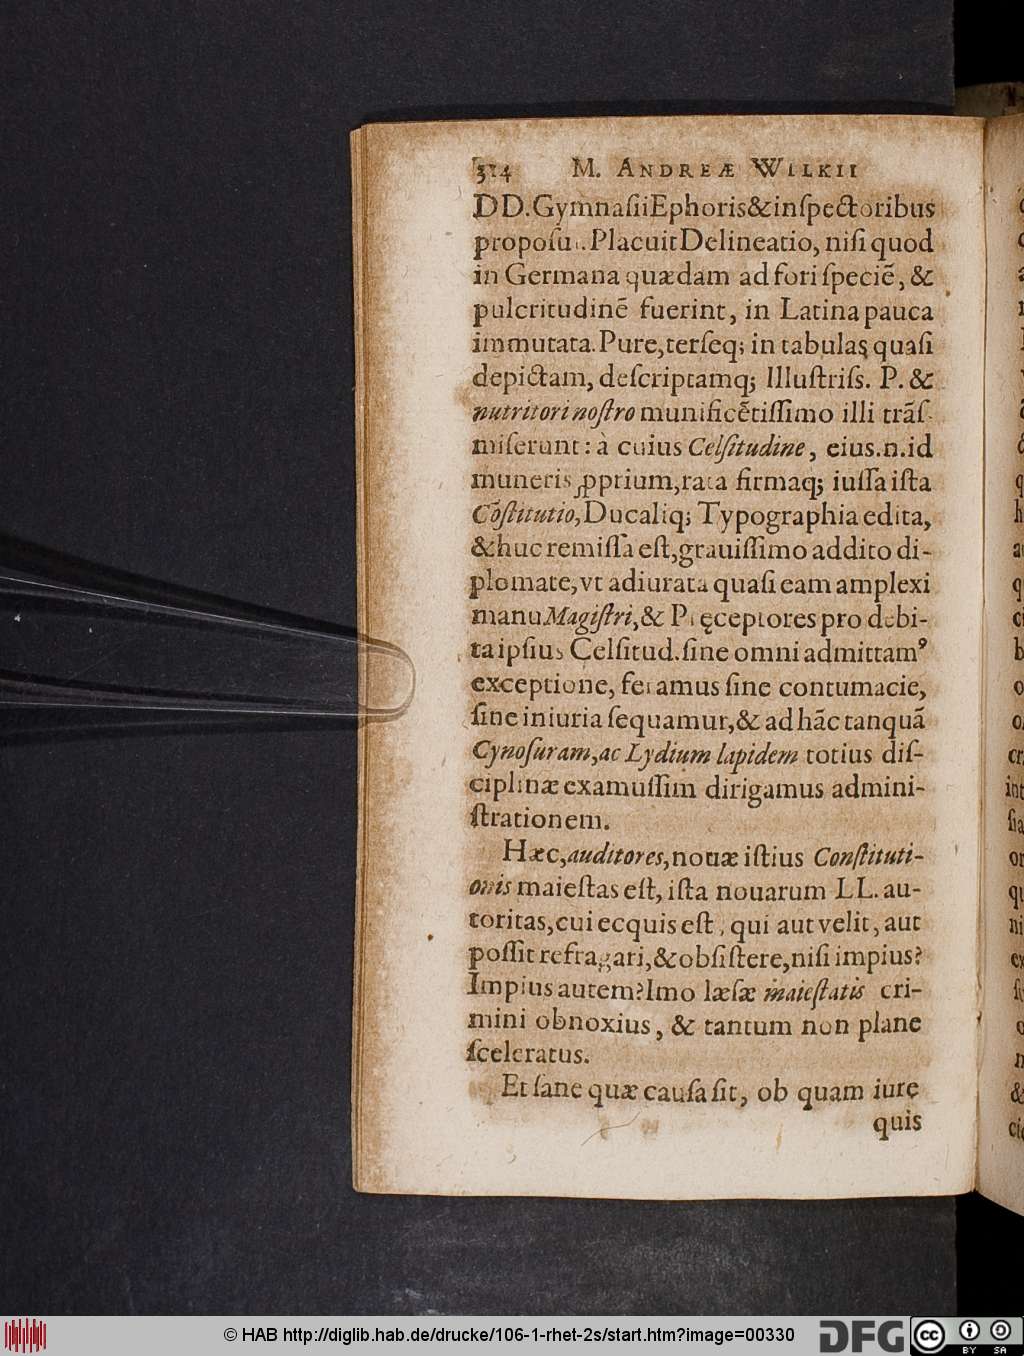 314 M. ANDREÆ WILKII
DD. Gymnaſii Ephoris & inſpectoribus
propoſui. Placuit Delineatio, niſi quod
in Germana quædam ad fori ſpeciē, &
pulcritudinē fuerint, in Latina pauca
immutata. Pure, terſeq; in tabulas quaſi
depictam, deſcriptamq; Illuſtriſs. P. &
nutritori noſtro munificētiſſimo illi trāſ-
miſerunt: à cuius Celſitudine, eius .n. id
muneris ꝓprium, rata firmaq; iuſſa iſta
Cōſtitutio, Ducaliq; Typographia edita,
& huc remiſſa eſt, grauiſſimo addito di-
plomate, vt adiurata quaſi eam amplexi
manu Magiſtri, & Pręceptores pro debi-
ta ipſius Celſitud. ſine omni admittamꝰ
exceptione, feramus ſine contumacie,
ſine iniuria ſequamur, & ad hāc tanquā
Cynoſuram, ac Lydium lapidem totius diſ-
ciplinæ examuſſim dirigamus admini-
ſtrationem.
Hæc, auditores, nouæ iſtius Conſtituti-
onis maieſtas eſt, iſta nouarum LL. au-
toritas, cui ecquis eſt, qui aut velit, aut
poſſit refragari, & obſiſtere, niſi impius?
Impius autem? Imo læſæ maieſtatis cri-
mini obnoxius, & tantum non plane
ſceleratus.
Et ſane quæ cauſa ſit, ob quam iure
quis
© HAB http://diglib.hab.de/drucke/106-1-rhet-2s/start.htm?image=00330
DFG
cc
BY SA